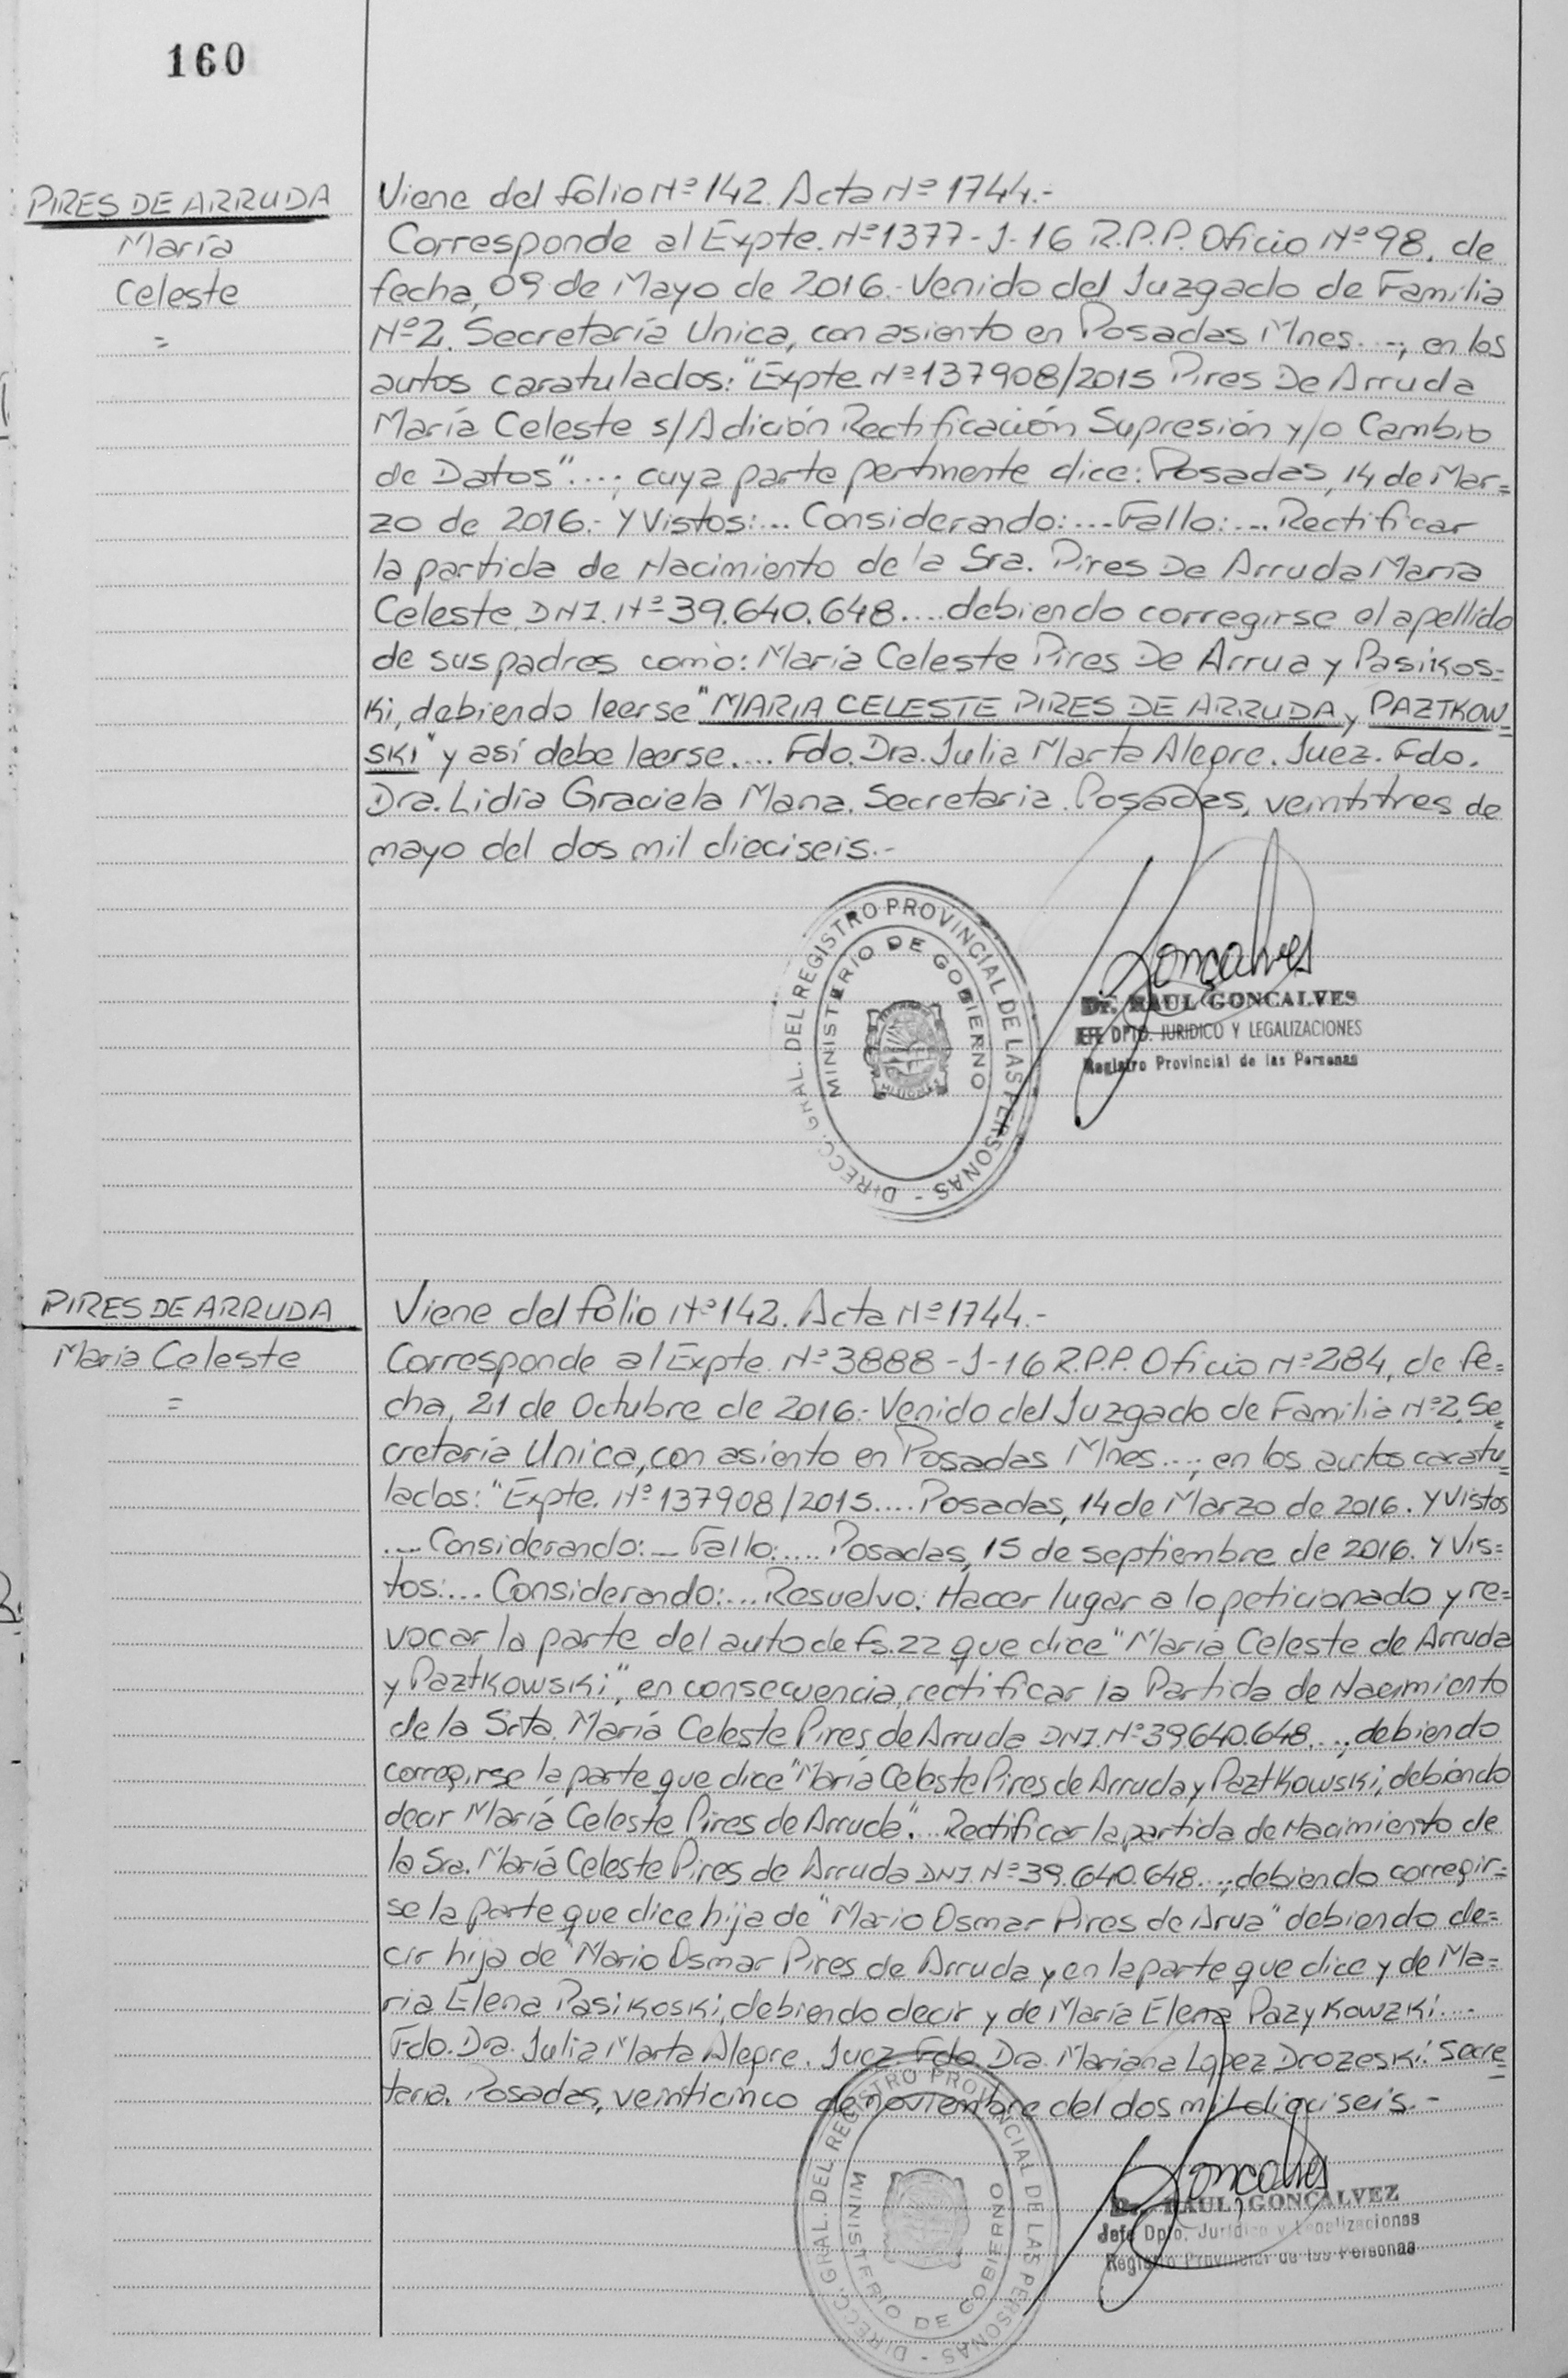 160
PIRES DE ARRUDA
María
Celeste
=
Viene del folio Nº 142. Acta Nº 1744.-
Corresponde al Expte. Nº 1377-J-16 R.P.P. Oficio Nº 98. de
fecha, 09 de Mayo de 2016.- Venido del Juzgado de Familia
Nº 2. Secretaría Unica, con asiento en Posadas Mnes...-; en los
autos caratulados: "Expte Nº 137908/2015 Pires De Arruda
María Celeste s/Adición Rectificación Supresión y/o Cambio
de Datos"...; cuya parte pertinente dice: Posadas, 14 de Mar=
zo de 2016.- Y Vistos:... Considerando:... Fallo:... Rectificar
la partida de Nacimiento de la Sra. Pires De Arruda María
Celeste DNI. Nº 39.640.648.... debiendo corregirse el apellido
de sus padres como: María Celeste Pires De Arrua y Pasikos=
ki, debiendo leerse "MARIA CELESTE PIRES DE ARRUDA y PAZTKOW=
SKI" y así debe leerse.... Fdo. Dra. Julia Marta Alegre. Juez. Fdo.
Dra. Lidia Graciela Mana. Secretaria. Posadas, veintitres de
mayo del dos mil dieciseis.-
DIRECC. GRAL. DEL REGISTRO PROVINCIAL DE LAS PERSONAS -
MINISTERIO DE GOBIERNO
Goncalves
Dr. RAUL GONCALVES
JEFE DPTO. JURIDICO Y LEGALIZACIONES
Registro Provincial de las Personas
PIRES DE ARRUDA
María Celeste
=
Viene del folio Nº 142. Acta Nº 1744.-
Corresponde al Expte. Nº 3888-J-16 R.P.P. Oficio Nº 284, de fe=
cha, 21 de Octubre de 2016.- Venido del Juzgado de Familia Nº 2. Se=
cretaría Unica, con asiento en Posadas Mnes...; en los autos caratu=
lados: "Expte. Nº 137908/2015.... Posadas, 14 de Marzo de 2016. Y Vistos
...Considerando:... Fallo:.... Posadas, 15 de septiembre de 2016. Y Vis=
tos:... Considerando:... Resuelvo: Hacer lugar a lo peticionado y re=
vocar la parte del auto de fs. 22 que dice "María Celeste de Arruda
y Paztkowski", en consecuencia, rectificar la Partida de Nacimiento
de la Srta. María Celeste Pires de Arruda DNI. Nº 39.640.648...; debiendo
corregirse la parte que dice "María Celeste Pires de Arruda y Paztkowski, debiendo
decir María Celeste Pires de Arruda"... Rectificar la partida de Nacimiento de
la Sra. María Celeste Pires de Arruda DNI. Nº 39.640.648...; debiendo corregir=
se la parte que dice hija de "Mario Osmar Pires de Arua" debiendo de=
cir hija de "Mario Osmar Pires de Arruda y en la parte que dice y de Ma=
ria Elena Pasikoski, debiendo decir y de María Elena Pazykowzki....
Fdo. Dra. Julia Marta Alegre. Juez. Fdo. Dra. Mariana Lopez Drozeski. Secre=
taria. Posadas, veinticinco de noviembre del dos mil dieciseis.-
DIRECC. GRAL. DEL REGISTRO PROVINCIAL DE LAS PERSONAS -
MINISTERIO DE GOBIERNO
Goncalves
Dr. RAUL GONCALVEZ
Jefe Dpto. Jurídico y Legalizaciones
Registro Provincial de las Personas